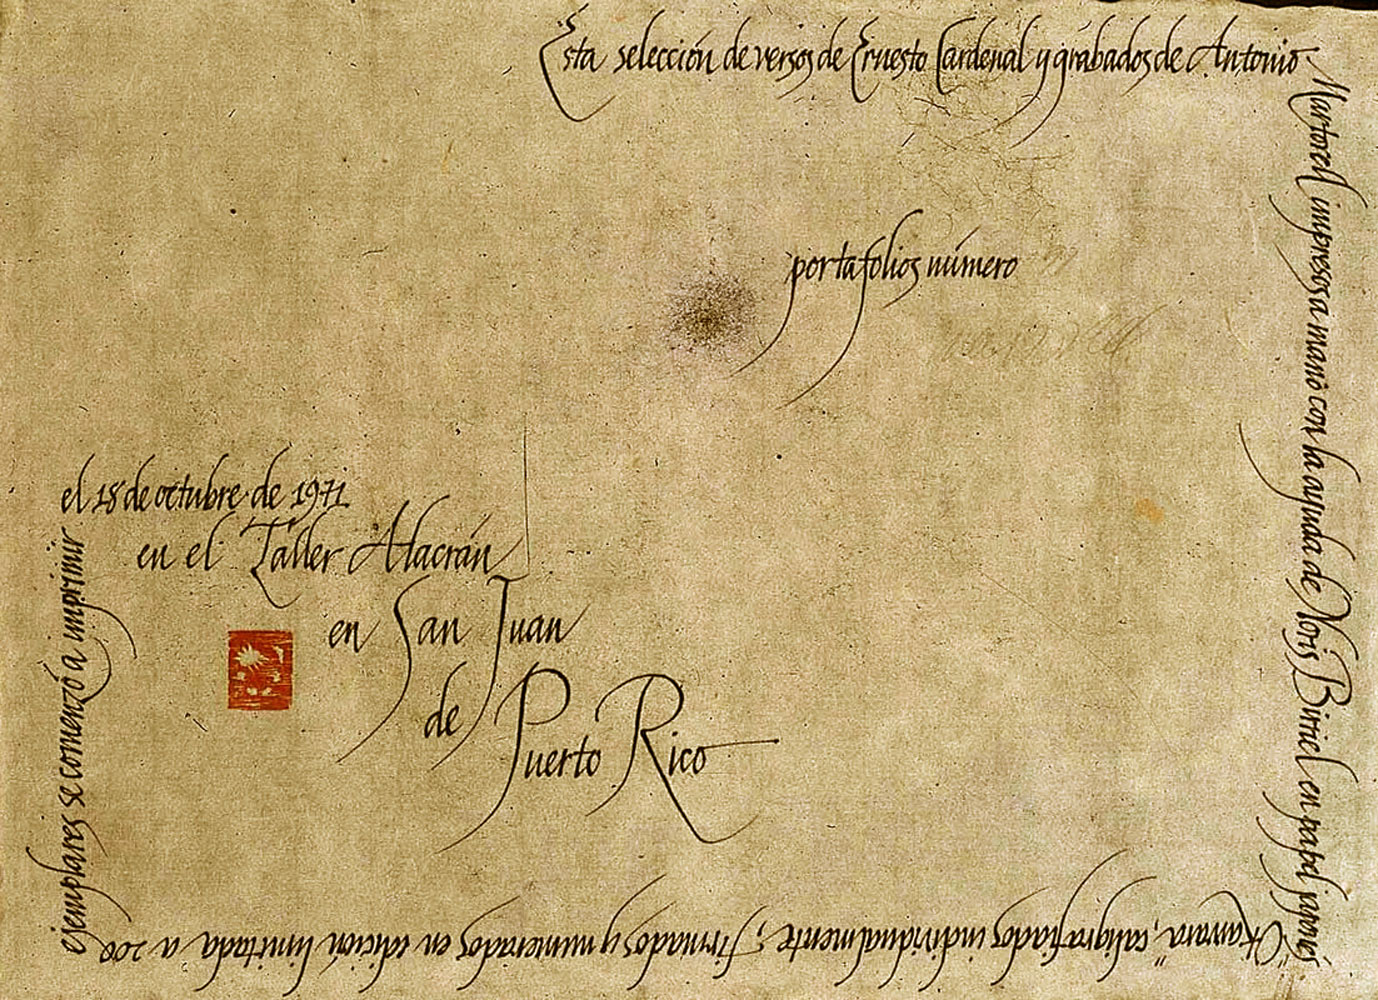 Esta selección de versos de Ernesto Cardenal y grabados de Antonio
Martorell impresos a mano con la ayuda de Noris Birriel en papel japonés
"Okawara", caligrafiados individualmente; firmados y numerados en edición limitada a 200
ejemplares se comenzó a imprimir
el 18 de octubre de 1971
en el Taller Alacrán
en San Juan
de
Puerto Rico
portafolios número